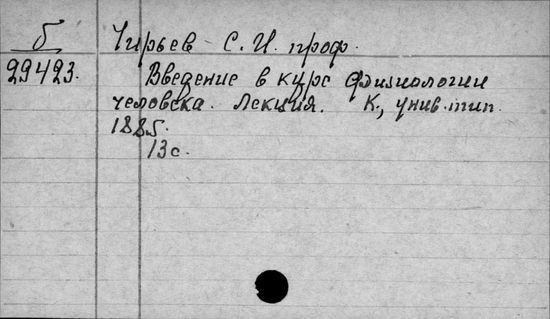 Б Чирьев С. И. проф.
29423. Введение в курс физиологии
человека. Лекция. К., унив. тип.
1885.
13 с.